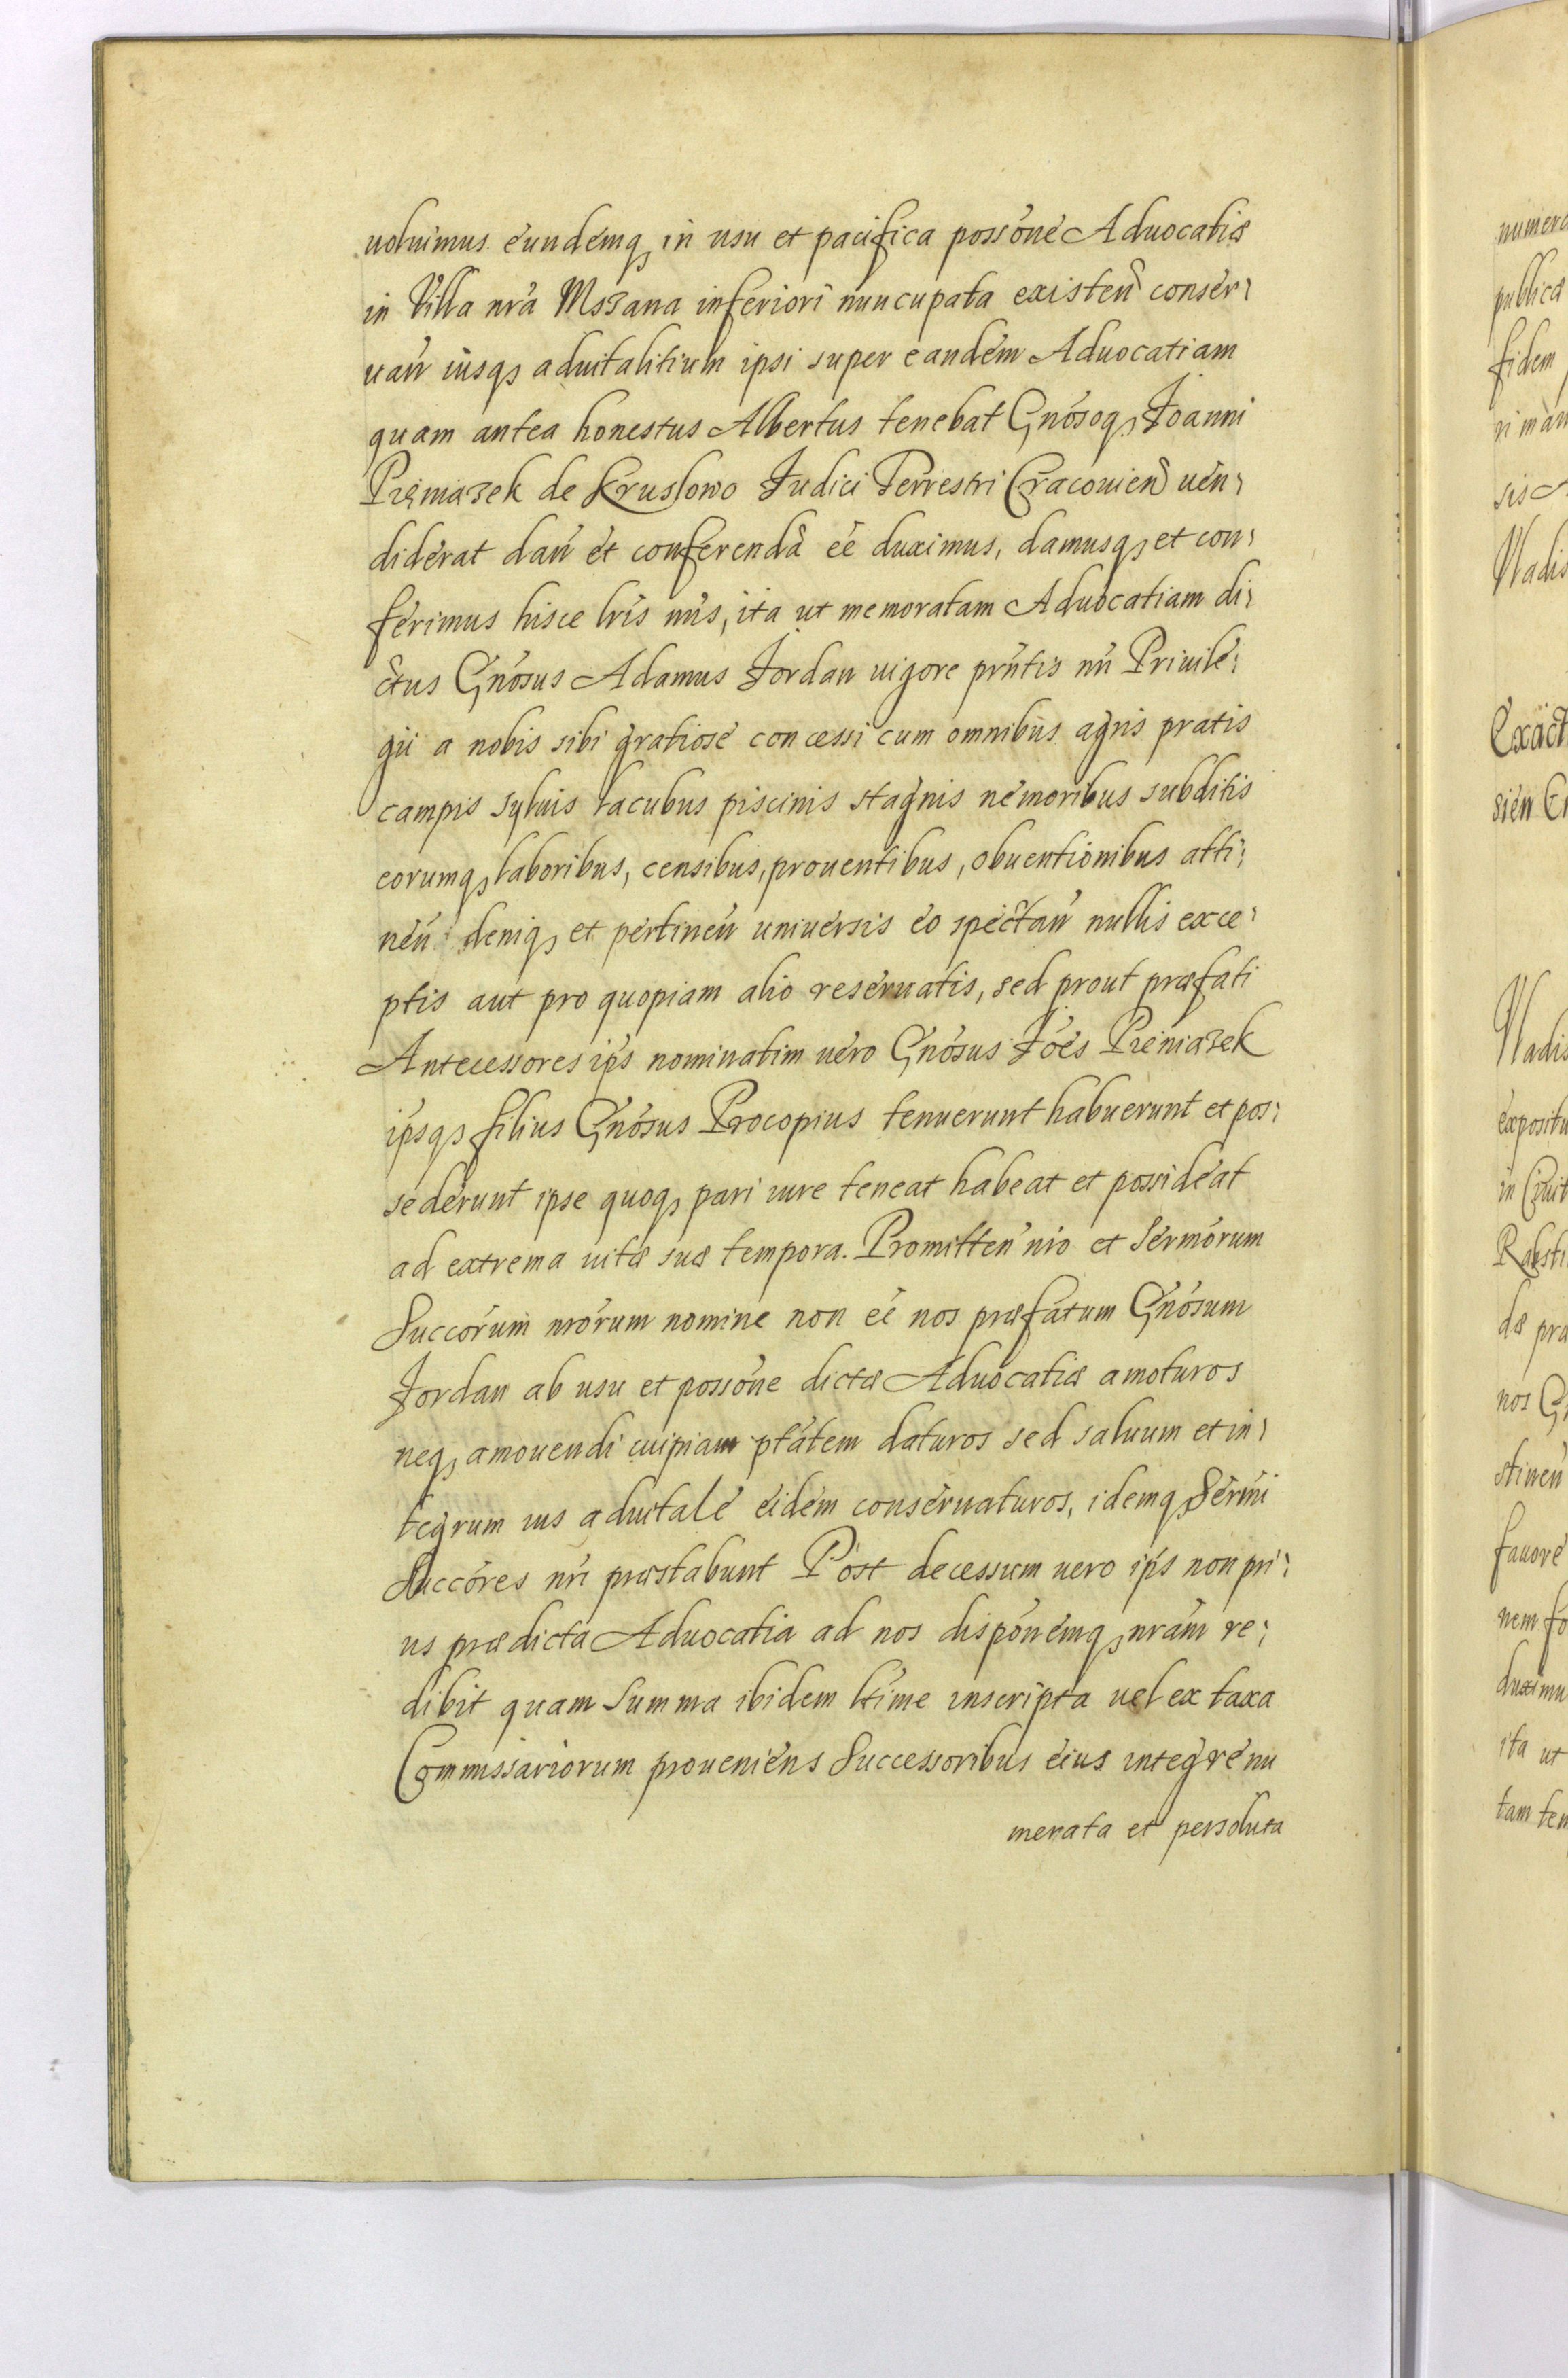 uoluimus eundemq₃ in usu et pacifica possone Aduocatiæ
in Villa nrã Mszana inferiori nuncupata existen̄ conser:
uan̄ iusq₃ aduitalitium ipsi super eandem Aduocatiam
quam antea honestus Albertus tenebat Gnosoq₃ Joanni
Pieniązek de Kruslowo Judici Terrestri Cracouien̄ uen:
diderat dan̄ et conferendã eē duximus, damusq₃ et con:
ferimus hisce lris nris, ita ut memoratam Aduocatiam di:
ctus Gnosus Adamus Jordan uigore pnt̄is nri Priuile:
gii a nobis sibi gratiose concessi cum omnibus agris pratis
campis syluis lacubus piscinis stagnis nemoribus subditis
eorumq₃ laboribus, censibus, prouentibus, obuentionibus atti:
nen̄ deniq₃ et pertinen̄ uniuersis eo spectan̄ nullis exce:
ptis aut pro quopiam alio reseruatis, sed prout præfati
Antecessores ip̄s nominatim uero Gnosus Joēs Pieniązek
ip̄sq₃ filius Gnosus Procopius tenuerunt habuerunt et pos:
sederunt ipse quoq₃ pari iure teneat habeat et possideat
ad extrema uitæ suæ tempora. Promitten̄ nro et Sermorum
Succorum nrorum nomine non eē nos præfatum Gnosum
Jordan ab usu et possone dictæ Aduocatiæ amoturos
neq₃ amouendi cuipiam ptatem daturos sed saluum et in:
tegrum ius aduitale eidem conseruaturos, idemq₃ Sermi
Succores nri præstabunt Post decessum uero ip̄s non pri:
us prædicta Aduocatia ad nos disponemq₃ nram re:
dibit quam Summa ibidem ltime inscripta uel ex taxa
Commissariorum proueniens Successoribus eius integre nu
merata et persoluta